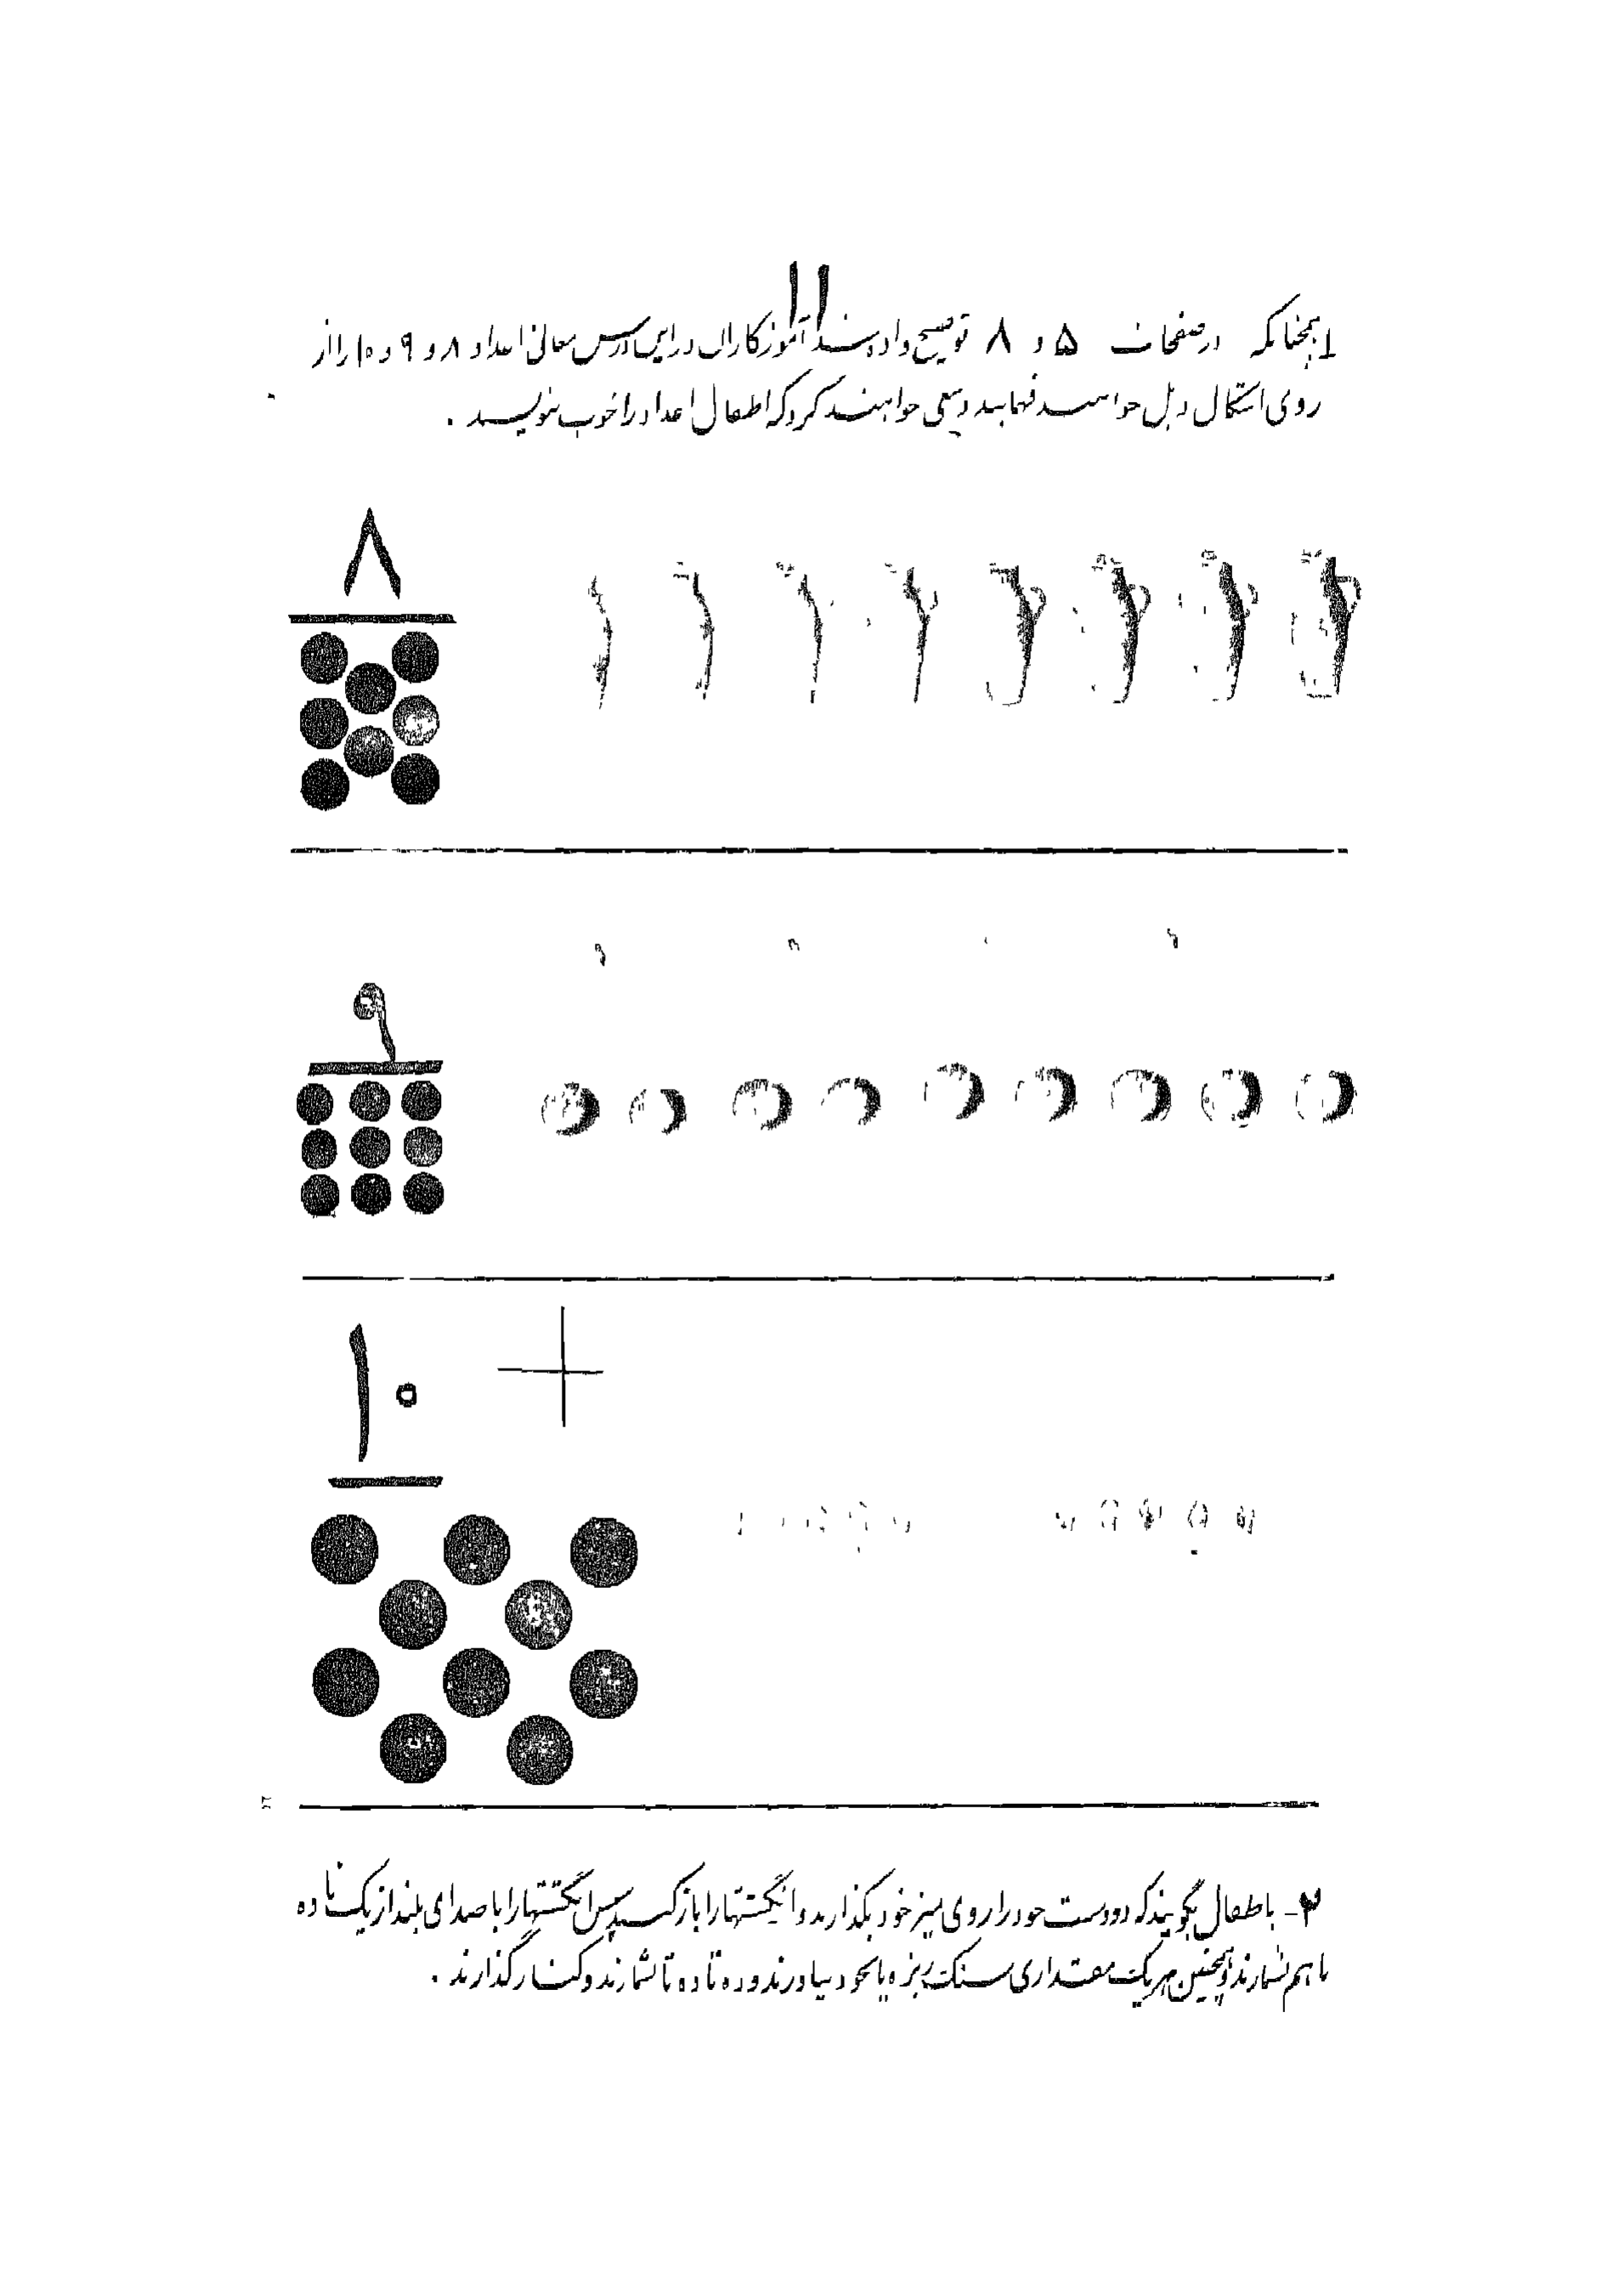 ۱۱
۱ـ همچنانکه در صفحات ۵ و ۸ توضیح داده شد آموزگاران در این درس معانی اعداد ۸ و ۹ و ۱۰ را از
روی اشکال ذیل خواهند فهمانید و سعی خواهند کرد که اطفال اعداد را خوب بنویسند .
۸
۹
۱۰
۲- باطفال بگویند که دو دست خود را روی میز خود بگذارند و انگشتها را باز کنند سپس انگشتها را با صدای بلند از یک تا ده
با هم بشمارند و همچنین هر یک مقداری سنگ ریزه با خود بیاورند و ده تا ده تا بشمارند و کنار گذارند .